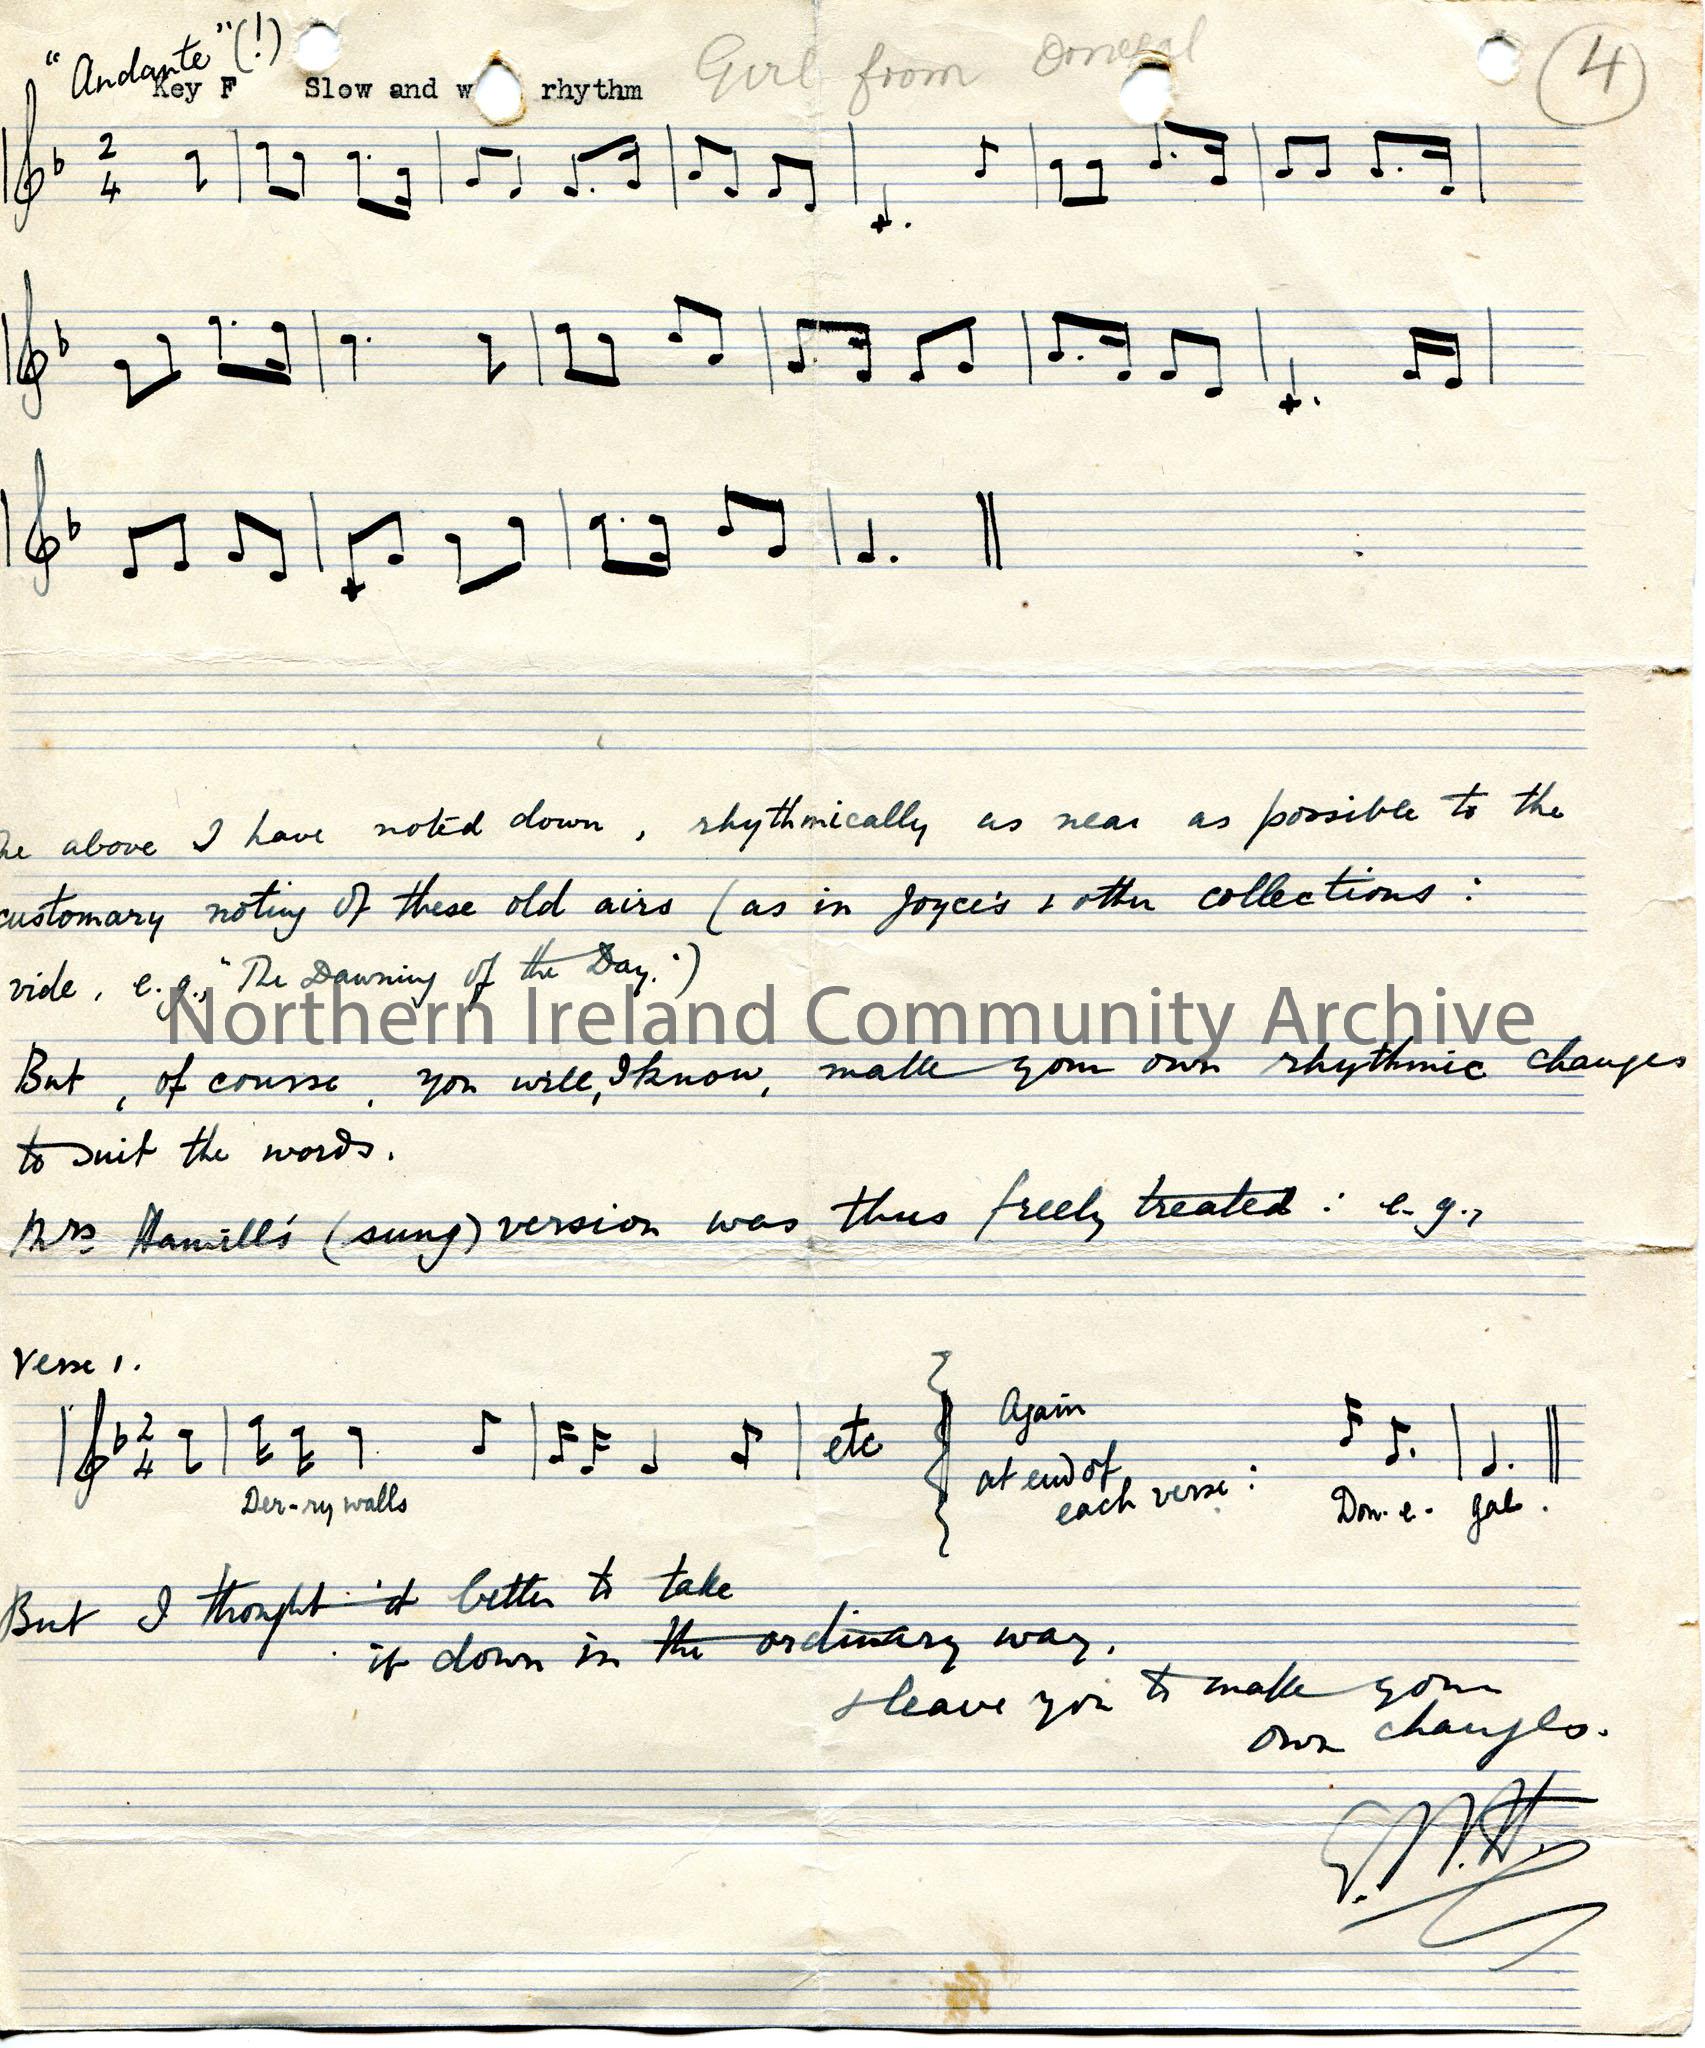 "Andante" (!)
Girl from Donegal
4
Key F Slow and w rhythm
2
4
he above I have noted down, rhythmically as near as possible to the
customary noting of these old airs (as in Joyce's & other collections:
vide, e.g., "The Dawning of the Day.")
Northern Ireland Community Archive
But, of course, you will, I know, make your own rhythmic changes
to suit the words.
Mrs Hamill's (sung) version was thus freely treated: e.g.,
Verse 1.
2
4
etc
Again
at end of
each verse:
Der-ry walls
Don-e-gal.
But I thought it better to take
it down in the ordinary way,
& leave you to make your
own changes.